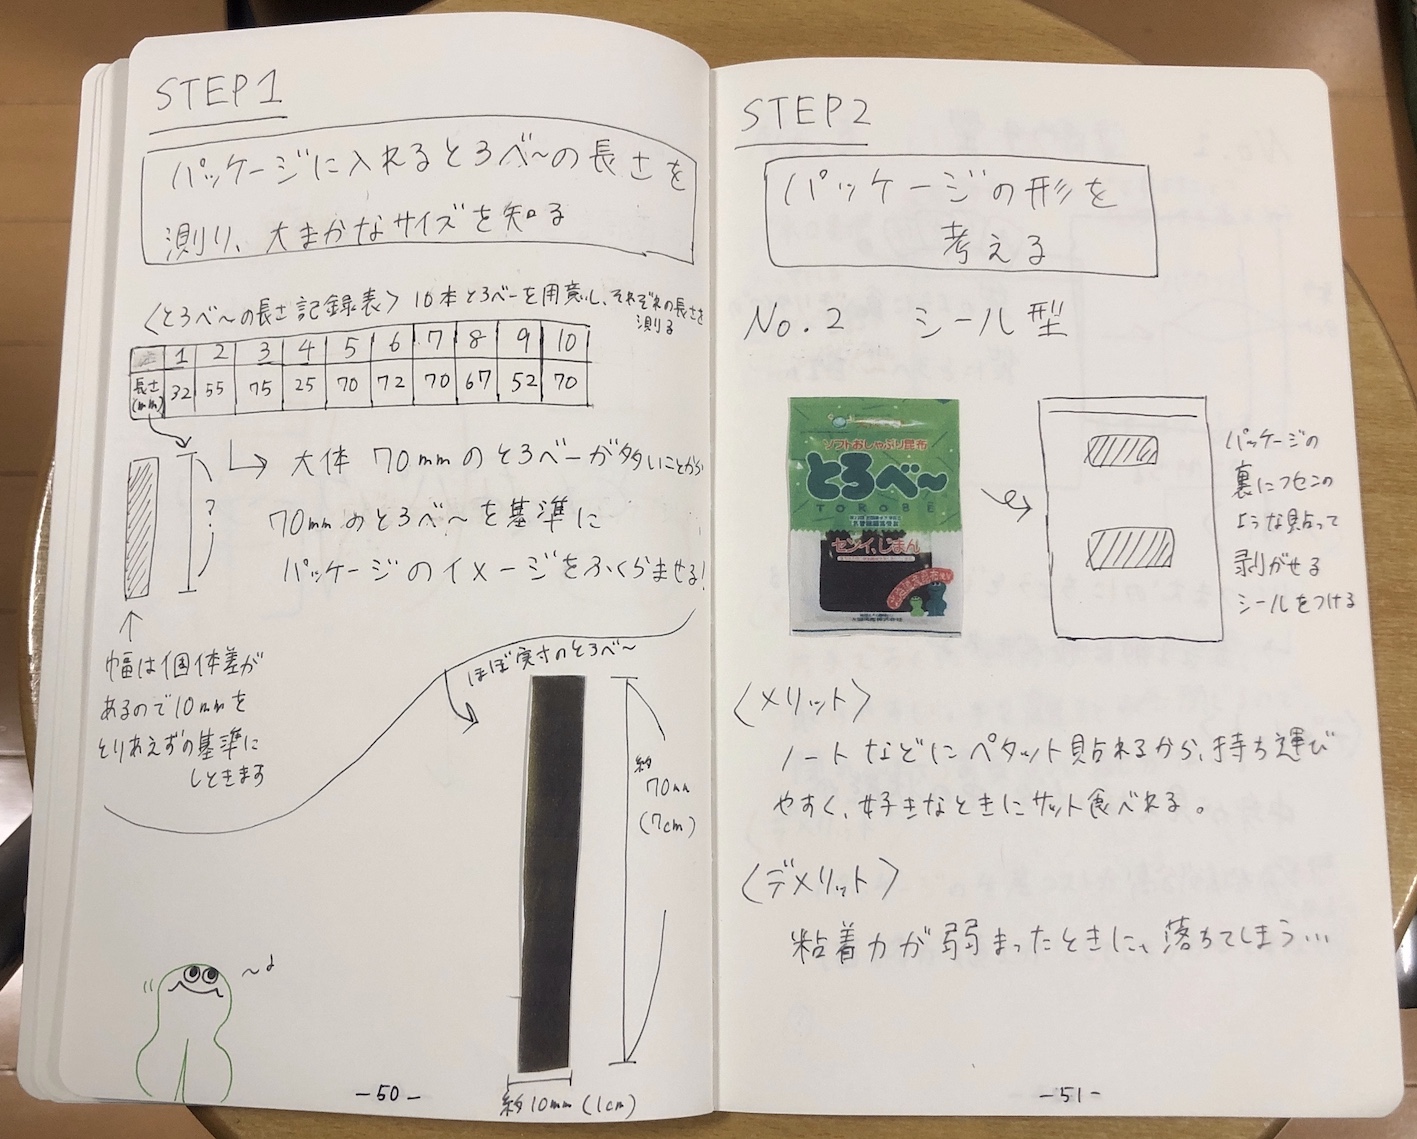 STEP1
パッケージに入れるとろべ〜の長さを
測り、大まかなサイズを知る
〈とろべ〜の長さ記録表〉 10本とろべーを用意し、それぞれの長さを
測る
1 2 3 4 5 6 7 8 9 10
長さ(mm) 32 55 75 25 70 72 70 67 52 70
大体 70mmのとろべーが多いことから
70mmのとろべ〜を基準に
パッケージのイメージをふくらませる!
?
幅は個体差が
あるので10mmを
とりあえずの基準に
しときます
ほぼ実寸のとろべ〜
約
70mm
(7cm)
約10mm(1cm)
〜♪
-50-
STEP2
パッケージの形を
考える
No.2 シール型
ソフトおしゃぶり昆布
とろべ〜
TOROBE
センイ、じまん
パッケージの
裏にフセンの
ような貼って
剥がせる
シールをつける
〈メリット〉
ノートなどにペタット貼れるから、持ち運び
やすく、好きなときにサット食べれる。
〈デメリット〉
粘着力が弱まったときに、落ちてしまう…
-51-